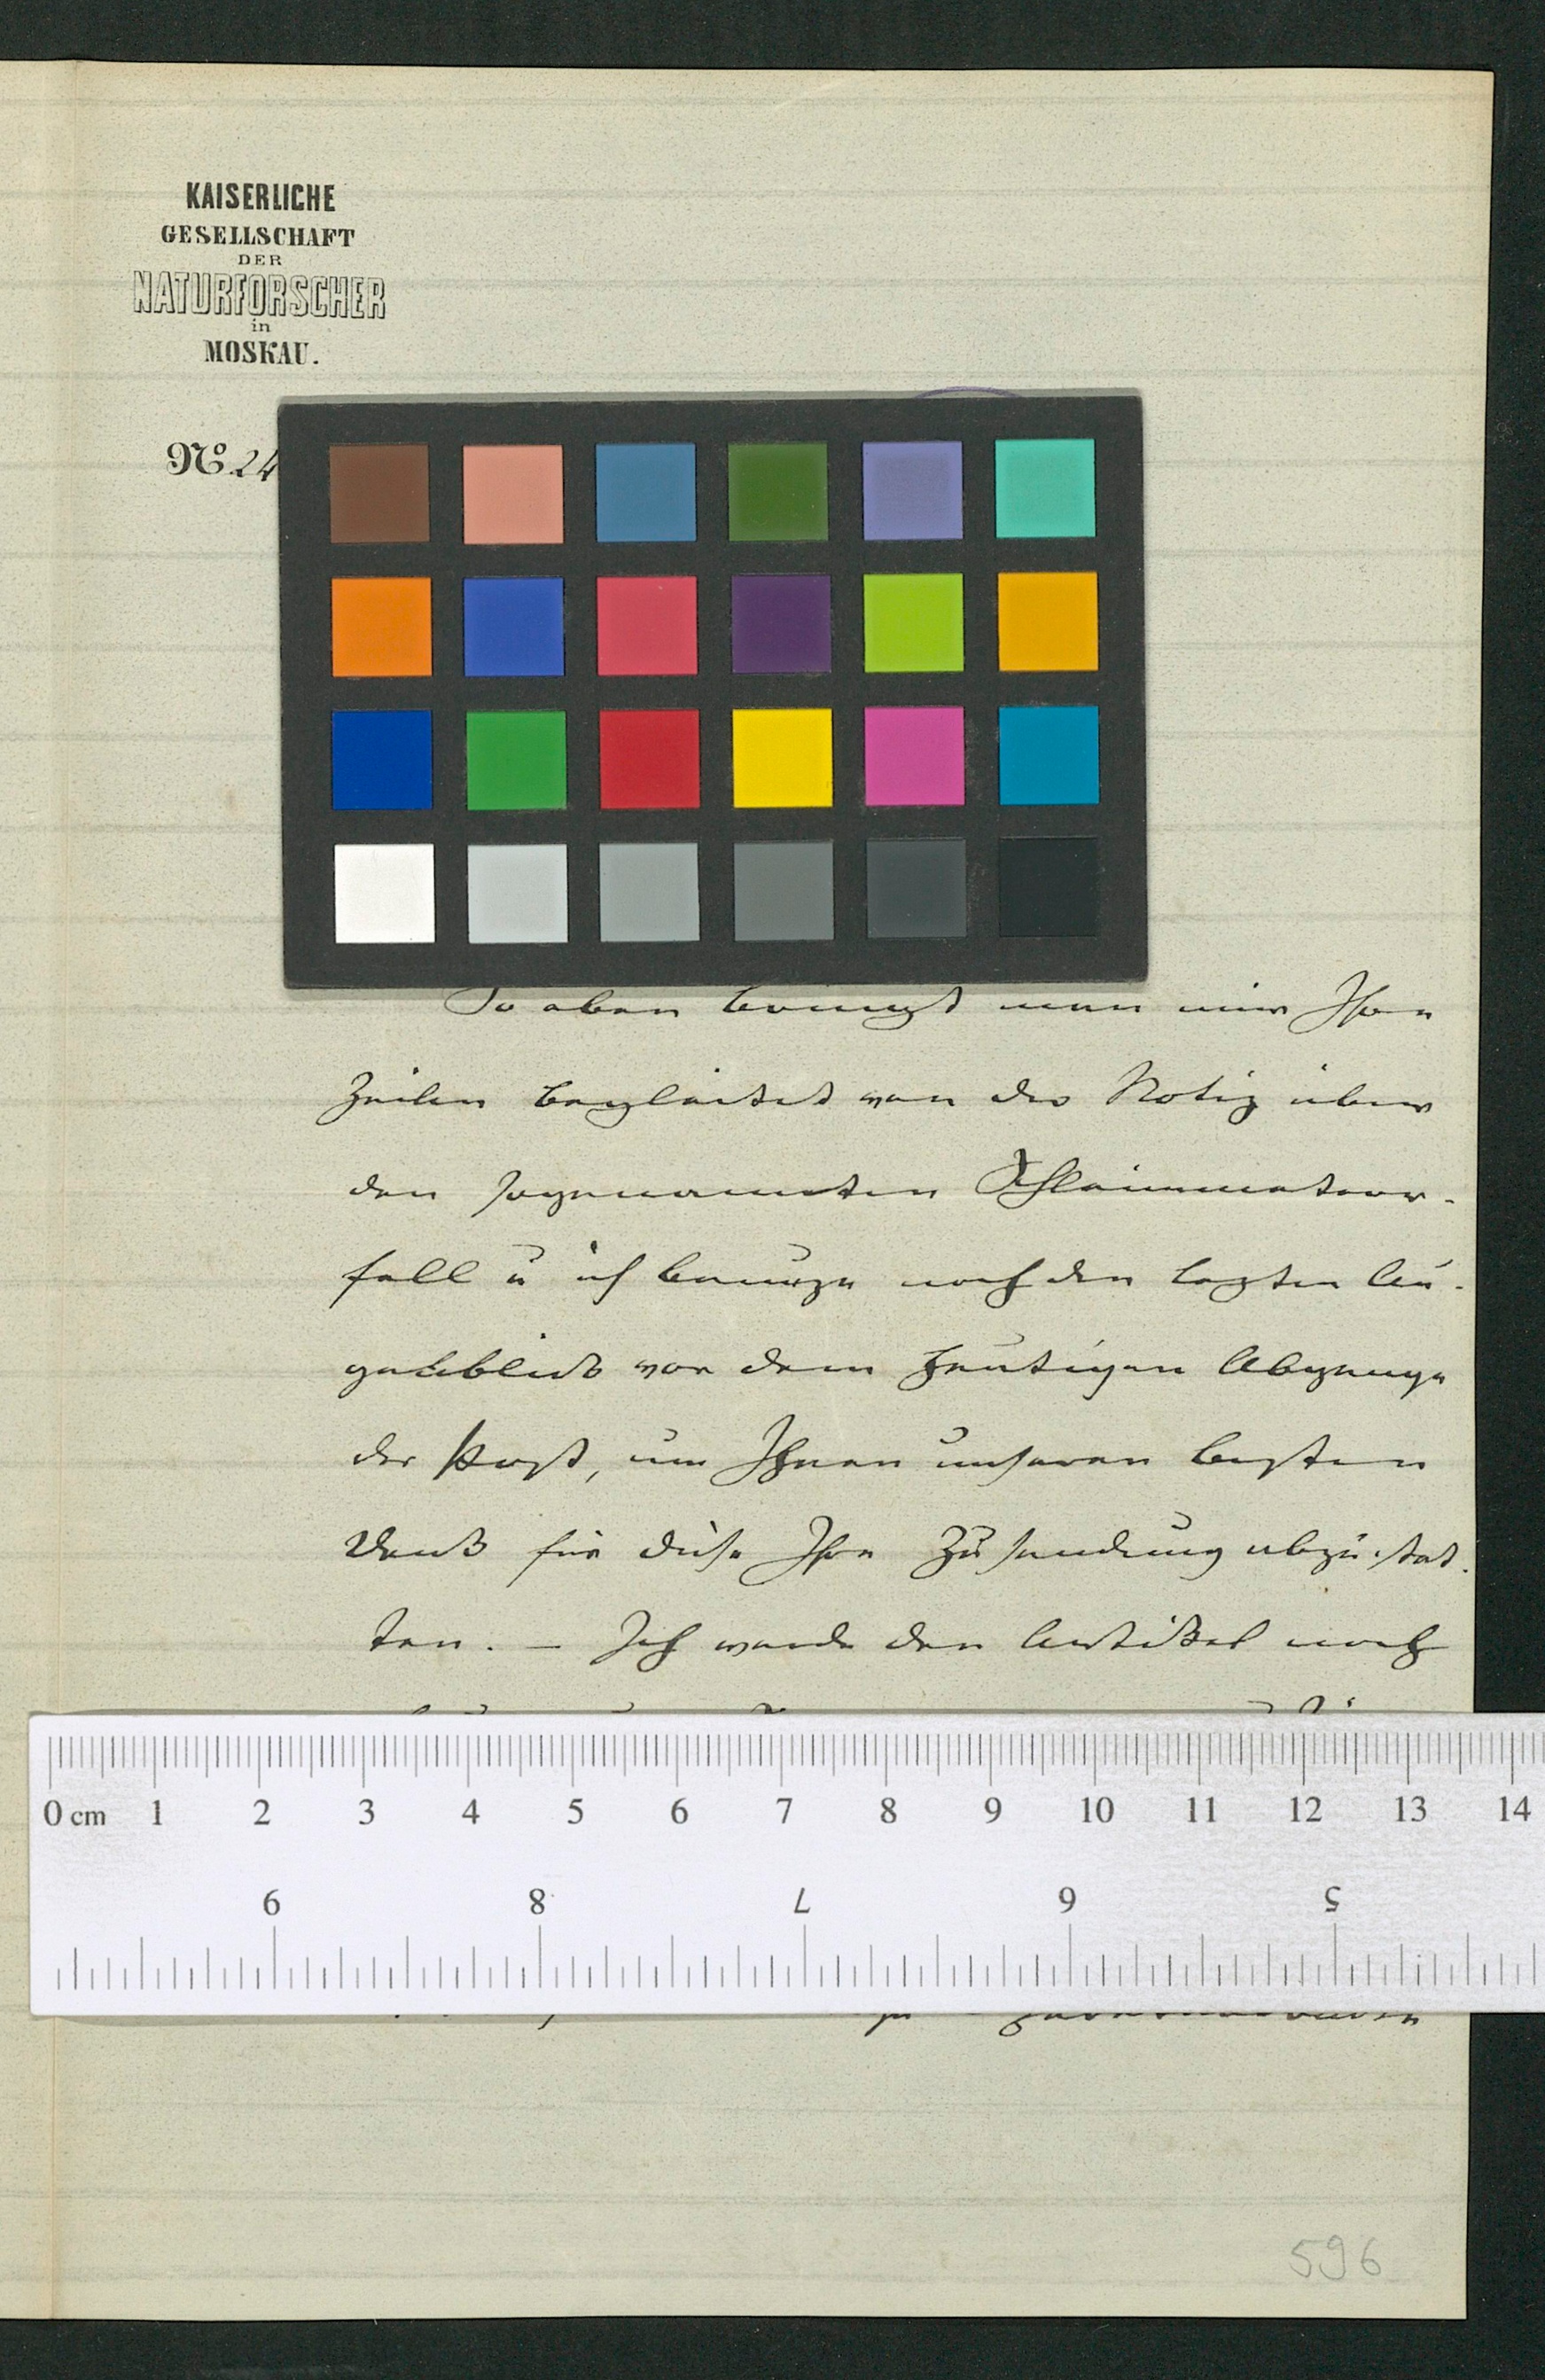 KAISERLICHE
GESELLSCHAFT
DER
NATURFORSCHER
in
MOSKAU.
No. 24
So eben bringt man mir Ihre
Zeilen begleitet von der Notiz über
den sogenannten Schleimmeteor-
fall u ich benutze noch den letzten Au-
genblick vor dem heutigen Abgange
der Post, um Ihnen unseren besten
Dank für diese Ihre Zusendung abzustat-
ten. – Ich werde den Artikel noch
0 cm 1 2 3 4 5 6 7 8 9 10 11 12 13 14
9 8 7 6 5
596